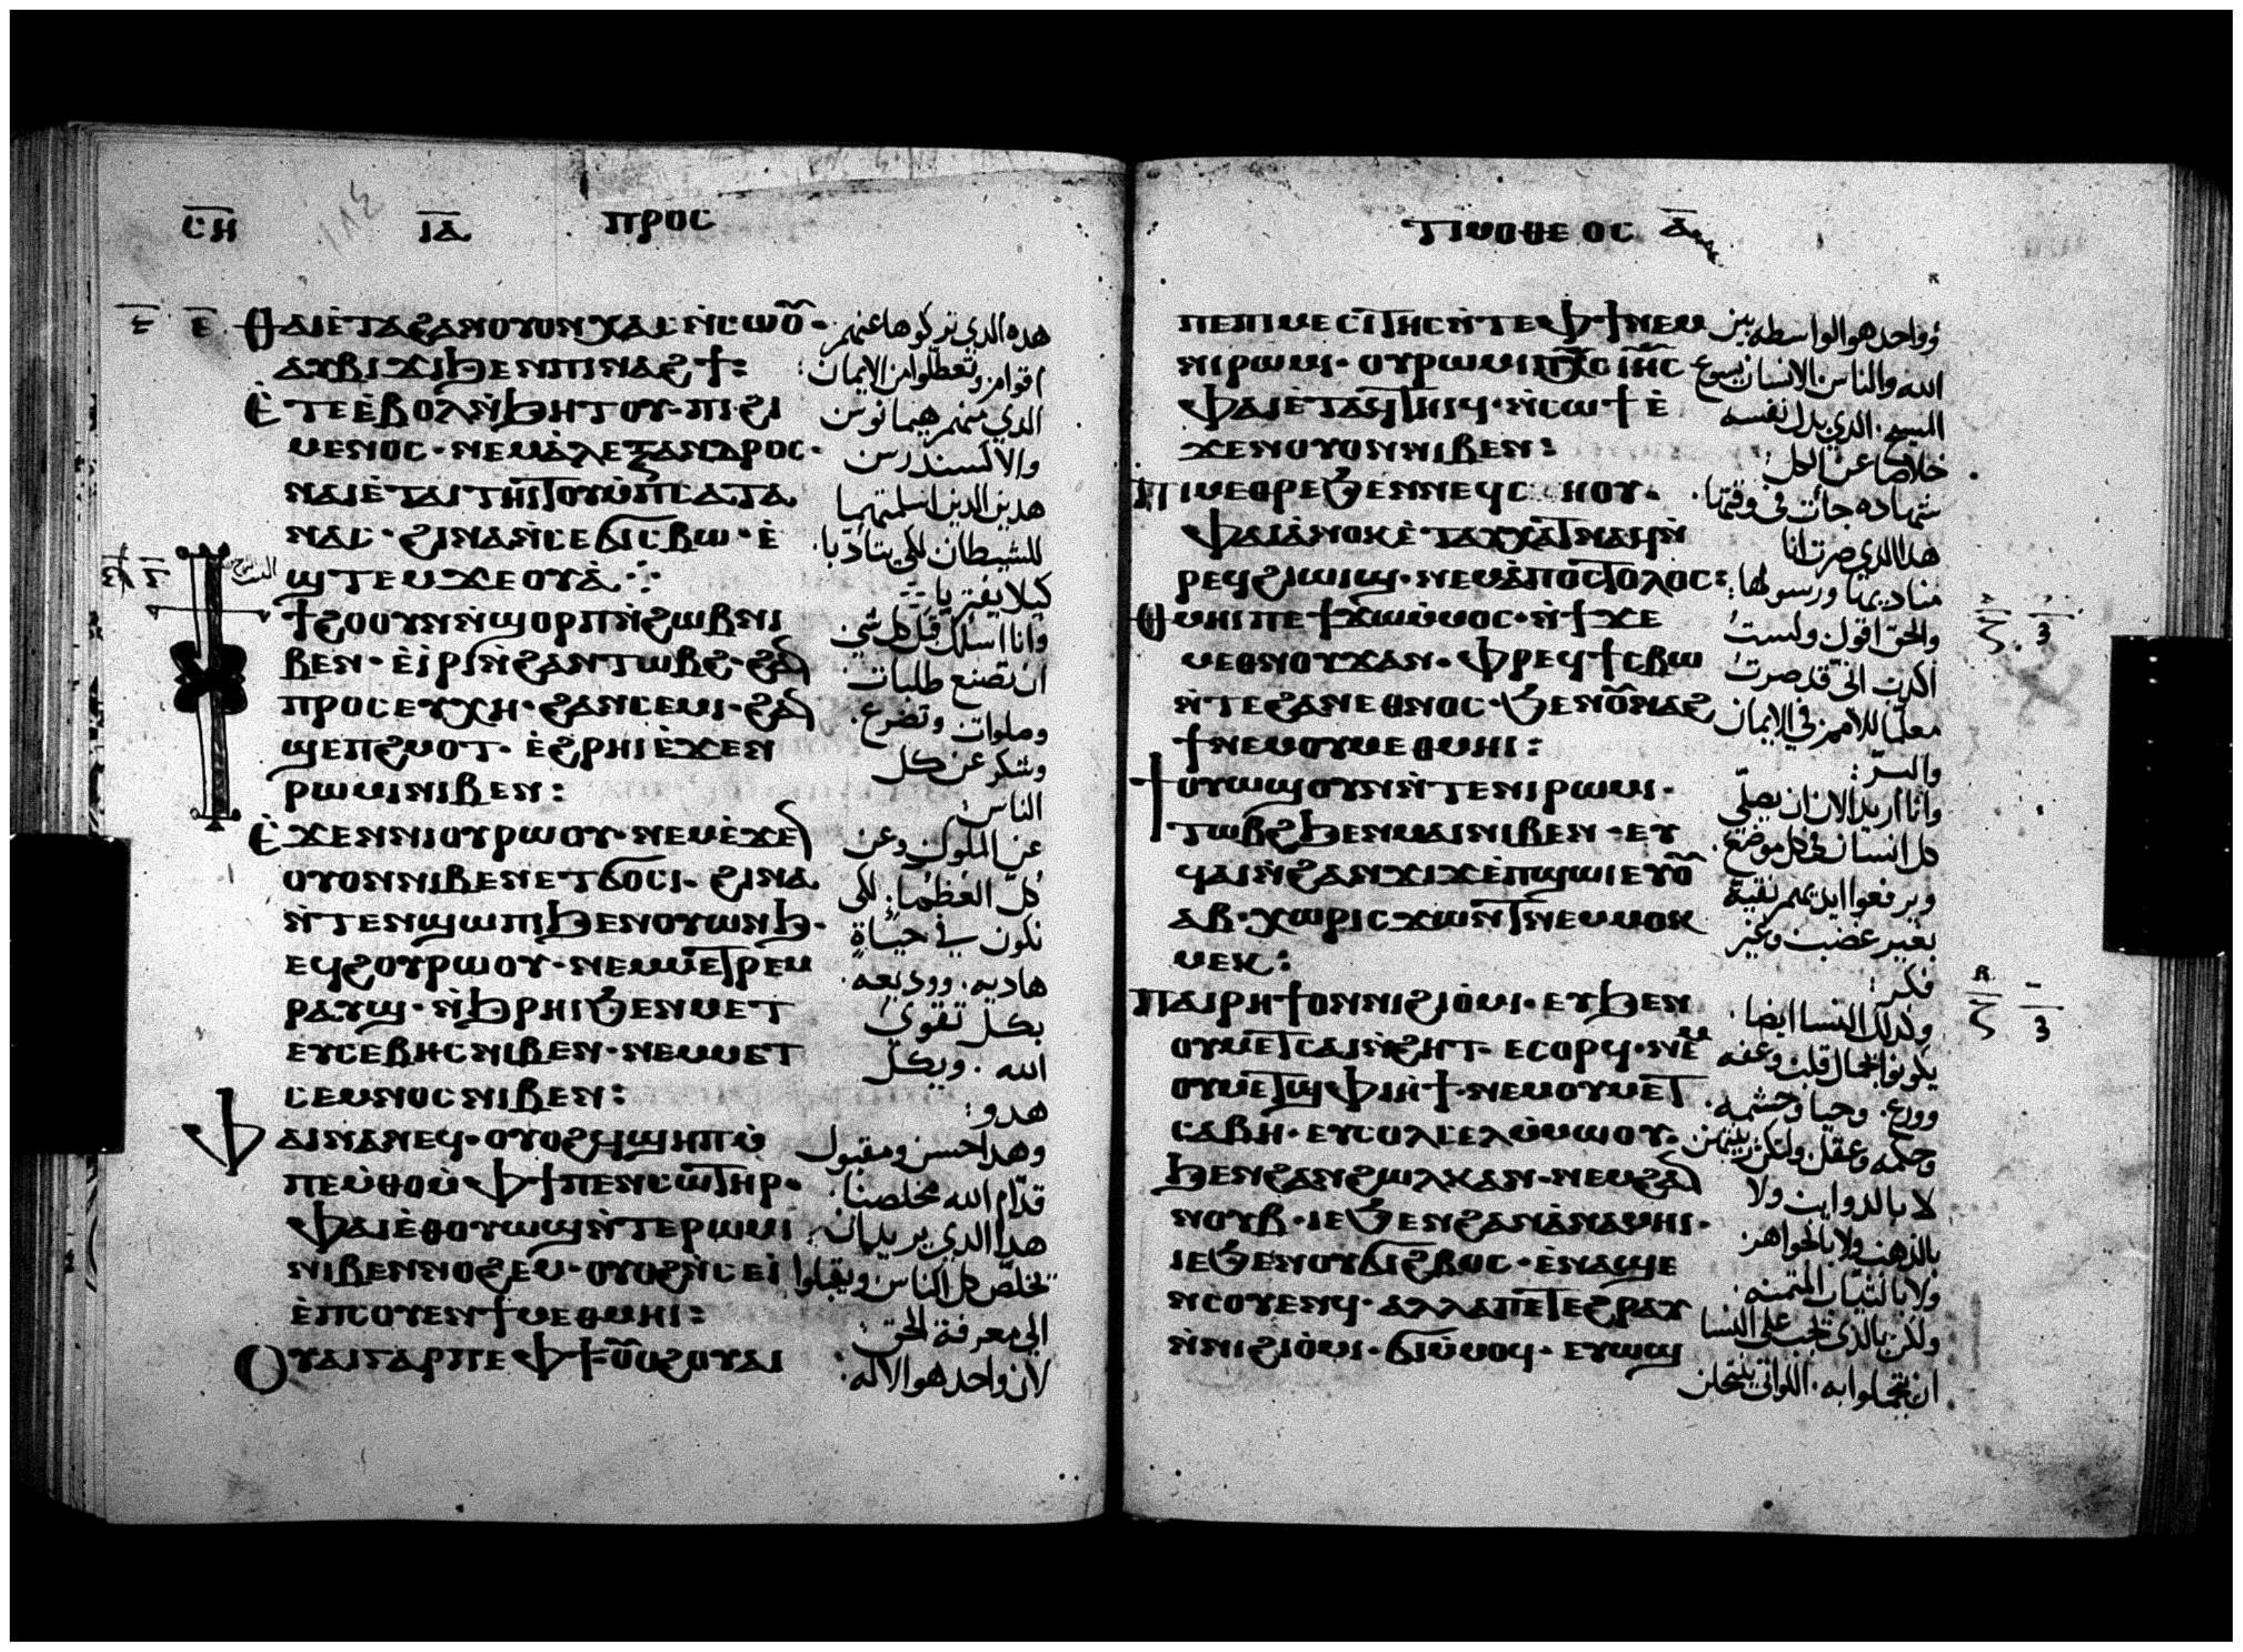 ⲥⲏ ⲓⲁ ⲡⲣⲟⲥ
ⲑⲁⲓⲉ̀ⲧⲁϩⲁⲛⲟⲩⲟⲛⲭⲁⲥⲛ̀ⲥⲱⲟ̅·
ⲁⲩⲃⲓϫⲓϧⲉⲛⲡⲓⲛⲁϩϯ:
ⲉ̀ⲧⲉⲉ̀ⲃⲟⲗⲛ̀ϧⲏⲧⲟⲩ·ⲡⲉϩⲓ
ⲙⲉⲛⲟⲥ·ⲛⲉⲙⲁ̀ⲗⲉⲝⲁⲛⲇⲣⲟⲥ·
ⲛⲁⲓⲉ̀ⲧⲁⲓⲧⲏⲓⲧⲟⲩⲙ̀ⲡⲥⲁⲧⲁ
ⲛⲁⲥ·ϩⲓⲛⲁⲛ̀ⲥⲉϭⲓⲥⲃⲱ·ⲉ̀
ϣⲧⲉⲙϫⲉⲟⲩⲁ̀
ϯϩⲟⲟⲩⲛⲛ̀ϣⲟⲣⲡⲛ̀ϩⲱⲃⲛⲓ
ⲃⲉⲛ·ⲉ̀ⲓ̀ⲣⲓⲛ̀ϩⲁⲛⲧⲱⲃϩ·ϩⲁ̅
ⲡⲣⲟⲥⲉⲩⲭⲏ·ϩⲁⲛⲥⲉⲙⲓ·ϩⲁ̅
ϣⲉⲡϩⲙⲟⲧ·ⲉ̀ϩⲣⲏⲓⲉ̀ϫⲉⲛ
ⲣⲱⲙⲓⲛⲓⲃⲉⲛ:
ⲉ̀ϫⲉⲛⲛⲓⲟⲩⲣⲱⲟⲩ·ⲛⲉⲙⲉ̀ϫⲉ̅
ⲟⲩⲟⲛⲛⲓⲃⲉⲛⲉⲧϭⲟⲥⲓ·ϩⲓⲛⲁ
ⲛ̀ⲧⲉⲛϣⲱⲡⲓϧⲉⲛⲟⲩⲱⲛϧ·
ⲉϥϩⲟⲩⲣⲱⲟⲩ·ⲛⲉⲙⲙⲉⲧⲣⲉⲙ
ⲣⲁⲩϣ·ⲛ̀ϧⲣⲏⲓϧⲉⲛⲙⲉⲧ
ⲉⲩⲥⲉⲃⲏⲥⲛⲓⲃⲉⲛ·ⲛⲉⲙⲙⲉⲧ
ⲥⲉⲙⲛⲟⲥⲛⲓⲃⲉⲛ:
ⲫⲁⲓⲛⲁⲛⲉϥ·ⲟⲩⲟϩϥϣⲏⲡⲙ̀
ⲡⲉⲙ̀ⲑⲟⲙ̀ⲫϯⲡⲉⲛⲥⲱⲧⲏⲣ·
ⲫⲁⲓⲉ̀ⲑⲟⲩⲱϣⲛ̀ⲧⲉⲣⲱⲙⲓ
ⲛⲓⲃⲉⲛⲛⲟϩⲉⲙ·ⲟⲩⲟϩⲛ̀ⲥⲉⲓ̀
ⲉ̀ⲡⲥⲟⲩⲉⲛϯⲙⲉⲑⲙⲏⲓ:
ⲟⲩⲁⲓⲅⲁⲣⲡⲉⲫϯ·ⲟ̅ⲟϩⲟⲩⲁⲓ
هذه الذي تركوها عنهم
اقوام وتعطلوا من الايمان:
الذي منهم هيمانوس
والاكسندرس
هذين الذين اسلمتهما
للشيطان لكي يتادبا·
كيلا يفتريا
وانا اسلك قبل كل شي
ان تصنع طلبات
وصلوات وتضرع·
وشكر عن كل
الناس:
عن الملوك وعن
كل العظما· لكي
نكون في حياة
هاديه· ووديعه·
بكل تقوى
الله· وبكل
هدو:
وهذا حسن ومقبول
قدام الله مخلصنا·
هذا الذي يريد ان
تخلص كل الناس ويقبلوا
الى معرفة الحق:
لان واحد هو الاله·
ⲧⲓⲙⲟⲑⲉⲟⲥ ⲁ̅
ⲡⲉⲡⲓⲙⲉⲥⲓⲧⲏⲥⲛ̀ⲧⲉⲫϯⲛⲉⲙ
ⲛⲓⲣⲱⲙⲓ·ⲟⲩⲣⲱⲙⲓⲡⲭ̅ⲥⲓⲏ̅ⲥ
ⲫⲁⲓⲉ̀ⲧⲁϥⲧⲏⲓϥ·ⲛ̀ⲥⲱϯⲉ̀
ϫⲉⲛⲟⲩⲟⲛⲛⲓⲃⲉⲛ:
ⲡⲓⲙⲉⲑⲣⲉϧⲉⲛⲛⲉϥⲥⲏⲟⲩ·
ⲫⲁⲓⲁ̀ⲛⲟⲕⲉ̀ⲧⲁⲩⲭⲁⲧⲛⲁϥⲛ̀
ⲣⲉϥϩⲓⲱⲓϣ·ⲛⲉⲙⲁ̀ⲡⲟⲥⲧⲟⲗⲟⲥ:
ⲑⲙⲏⲓⲡⲉϯϫⲱⲙ̀ⲙⲟⲥ·ⲛ̀ϯϫⲉ
ⲙⲉⲑⲛⲟⲩϫⲁⲛ·ⲫⲣⲉϥϯⲥⲃⲱ
ⲛ̀ⲧⲉϩⲁⲛⲉⲑⲛⲟⲥ·ϧⲉⲛⲟ̅ⲛⲁϩ
ϯⲛⲉⲙⲟⲩⲙⲉⲑⲙⲏⲓ:
ϯⲟⲩⲱϣⲟⲩⲛⲛ̀ⲧⲉⲛⲓⲣⲱⲙⲓ·
ⲧⲱⲃϩϧⲉⲛⲙⲁⲓⲛⲓⲃⲉⲛ·ⲉⲩ
ϥⲁⲓⲛ̀ϩⲁⲛϫⲓϫⲉ̀ⲡϣⲱⲓⲉⲩⲟ̅
ⲁⲃ·ⲭⲱⲣⲓⲥϫⲱⲛⲧⲛⲉⲙⲙⲟⲕ
ⲙⲉⲕ:
ⲡⲁⲓⲣⲏϯⲟⲛⲛⲓϩⲓⲟ̀ⲙⲓ·ⲉⲩϧⲉⲛ
ⲟⲩⲙⲉⲧⲥⲁⲓⲛ̀ϩⲏⲧ·ⲉⲥⲟⲣϥ·ⲛⲉ̅ⲙ
ⲟⲩⲙⲉⲧϣⲫⲓⲏϯ·ⲛⲉⲙⲟⲩⲙⲉⲧ
ⲥⲁⲃⲏ·ⲉⲩⲥⲟⲗⲥⲉⲗⲙ̀ⲙⲱⲟⲩ·
ϧⲉⲛϩⲁⲛϩⲱⲗⲕⲁⲛ·ⲛⲉⲙϩⲁ̅
ⲛⲟⲩⲃ·ⲓⲉϧⲉⲛϩⲁⲛⲁ̀ⲛⲁⲙⲏⲓ·
ⲓⲉϧⲉⲛⲟⲩϭⲓϩⲃⲱⲥ·ⲉ̀ⲛⲁϣⲉ
ⲛⲥⲟⲩⲉⲛϥ·ⲁⲗⲗⲁⲡⲉⲧⲉϩⲣⲁⲩ
ⲛ̀ⲛⲓϩⲓⲟ̀ⲙⲓ·ϭⲓⲙ̀ⲙⲟϥ·ⲉⲩⲱϣ
وواحد هو الواسطه بين
الله والناس الانسان يسوع
المسيح· الذي بذل نفسه
خلاصا عن الكل:
شهاده جات في وقتها·
هذا الذي صرت انا
مناديها ورسولها:
والحق اقول ولست
اكذب اني قد صرت
معلما للامم في الايمان
والسر:
وانا اريد الان ان يصلي
كل انسان في كل موضع·
ويرفعوا ايديهم نقية
بغير غضب وغير
فكر:
وكذلك النسا ايضا·
يكونوا بجمال قلب وعفه
وورع· وحيا وحشمه·
وحكمه وعقل
لا بالذوايب ولا
بالذهب ولا بالجواهر
ولا بالثياب المثمنه·
ولكن بالذي تجب على النسا
ان يتجملوا به· اللواتي